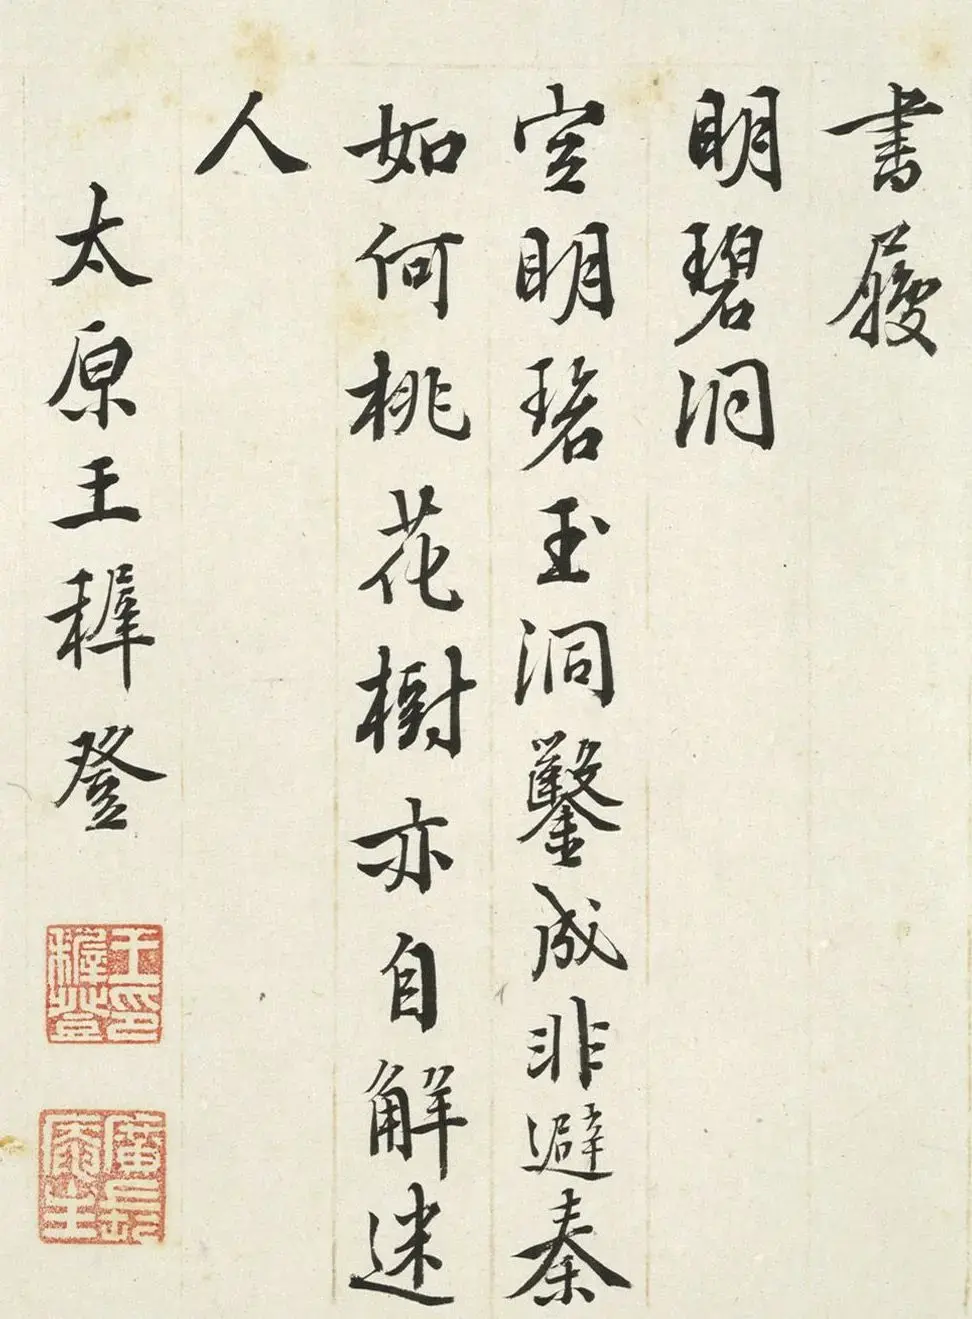 書
明碧洞
空明碧玉洞鑿成非避秦
如何桃花樹亦自解迷
人
太原王穉登
王印穉登
廣長庵主